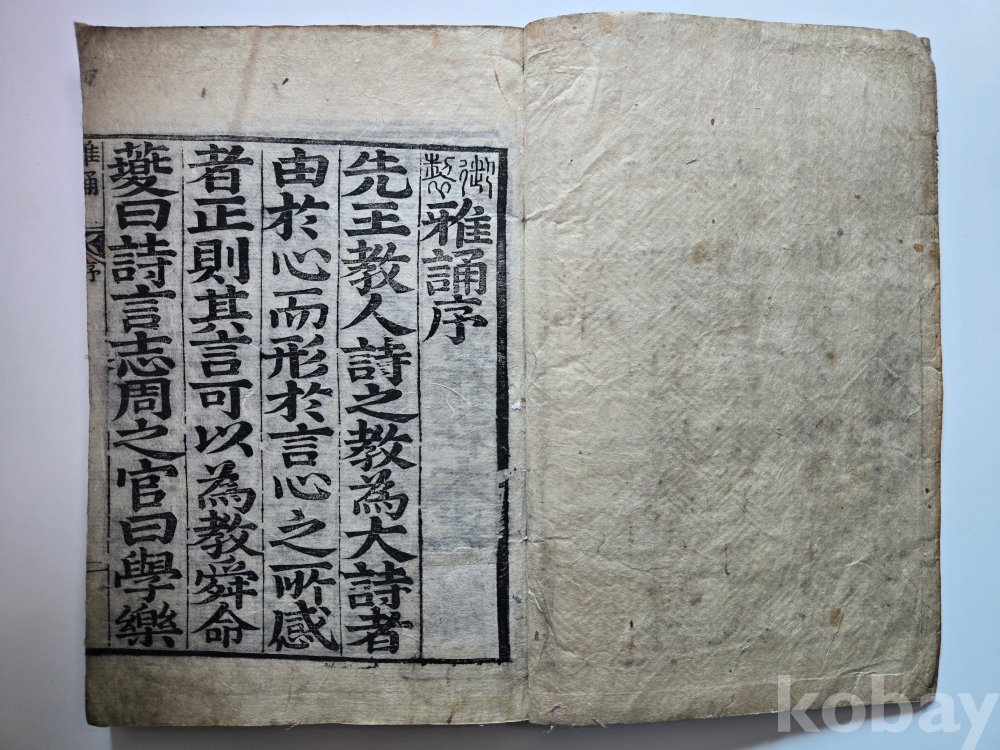 御製雅誦序
先王教人詩之教為大詩者
由於心而形於言心之所感
者正則其言可以為教舜命
夔曰詩言志周之官曰學樂
雅誦 序 一
kobay